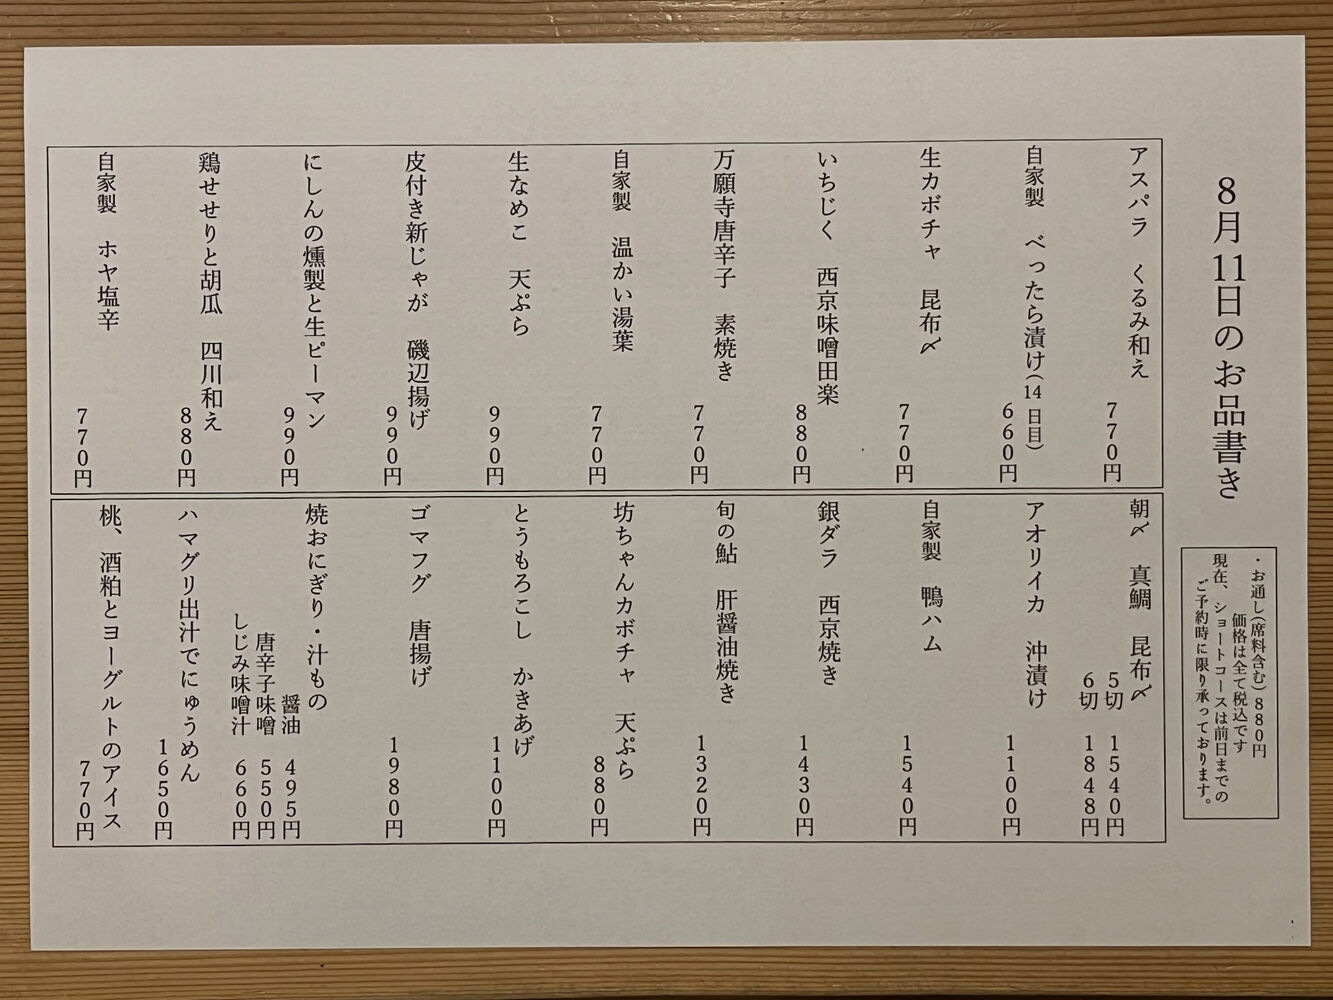 8月11日のお品書き
・お通し(席料含む)880円
価格は全て税込です
現在、ショートコースは前日までの
ご予約時に限り承っております。
アスパラ　くるみ和え
770円
自家製　べったら漬け(14日目)
660円
生カボチャ　昆布〆
770円
いちじく　西京味噌田楽
880円
万願寺唐辛子　素焼き
770円
自家製　温かい湯葉
770円
生なめこ　天ぷら
990円
皮付き新じゃが　磯辺揚げ
990円
にしんの燻製と生ピーマン
990円
鶏せせりと胡瓜　四川和え
880円
自家製　ホヤ塩辛
770円
朝〆　真鯛　昆布〆
5切　1540円
6切　1848円
アオリイカ　沖漬け
1100円
自家製　鴨ハム
1540円
銀ダラ　西京焼き
1430円
旬の鮎　肝醤油焼き
1320円
坊ちゃんカボチャ　天ぷら
880円
とうもろこし　かきあげ
1100円
ゴマフグ　唐揚げ
1980円
焼おにぎり・汁もの
醤油　495円
唐辛子味噌　550円
しじみ味噌汁　660円
ハマグリ出汁でにゅうめん
1650円
桃、酒粕とヨーグルトのアイス
770円